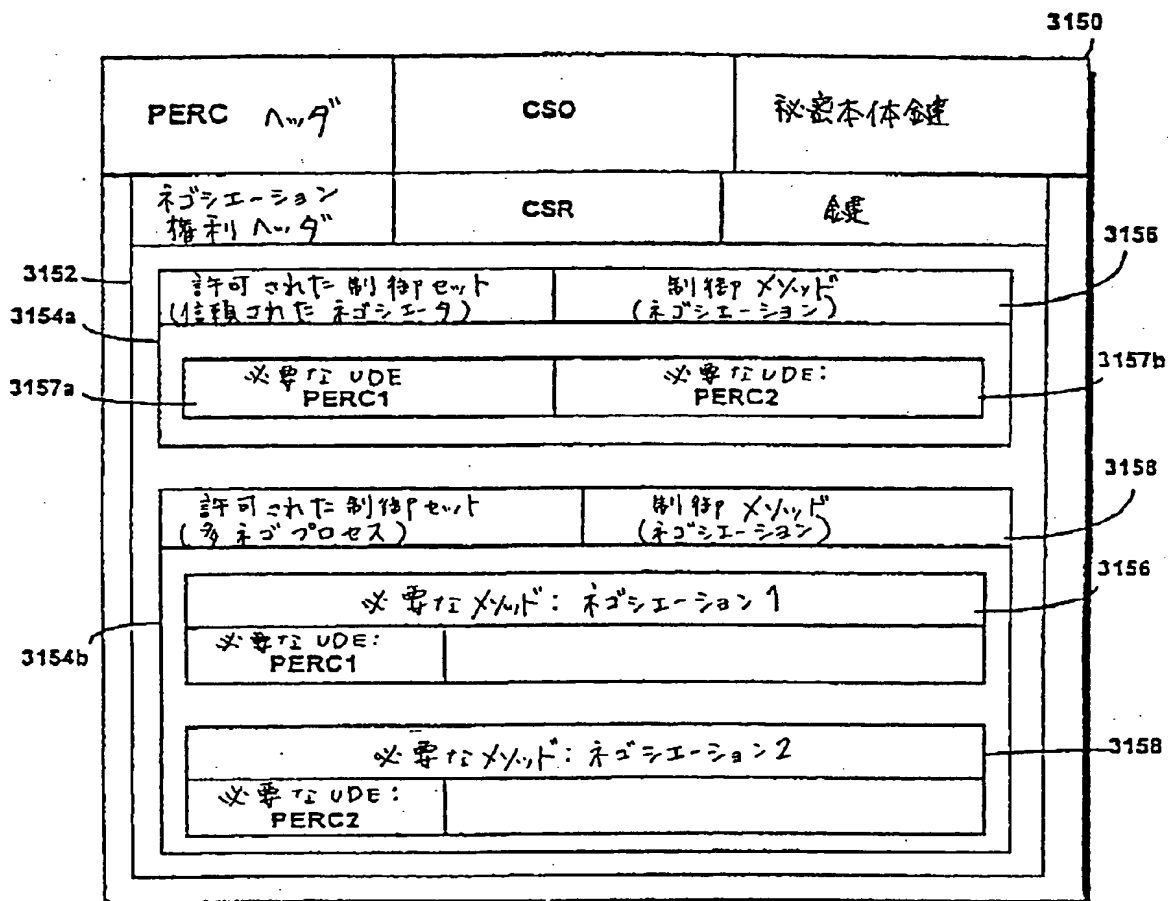 3150
PERC ヘッダ
CSO
秘密本体鍵
ネゴシエーション
権利ヘッダ
CSR
鍵
3156
3152
許可された制御セット
(信頼されたネゴシエータ)
制御メソッド
(ネゴシエーション)
3154a
3157a
必要なUDE
PERC1
必要なUDE:
PERC2
3157b
3158
許可された制御セット
(多ネゴプロセス)
制御メソッド
(ネゴシエーション)
3156
必要なメソッド: ネゴシエーション1
必要なUDE:
PERC1
3154b
必要なメソッド: ネゴシエーション2
3158
必要なUDE:
PERC2